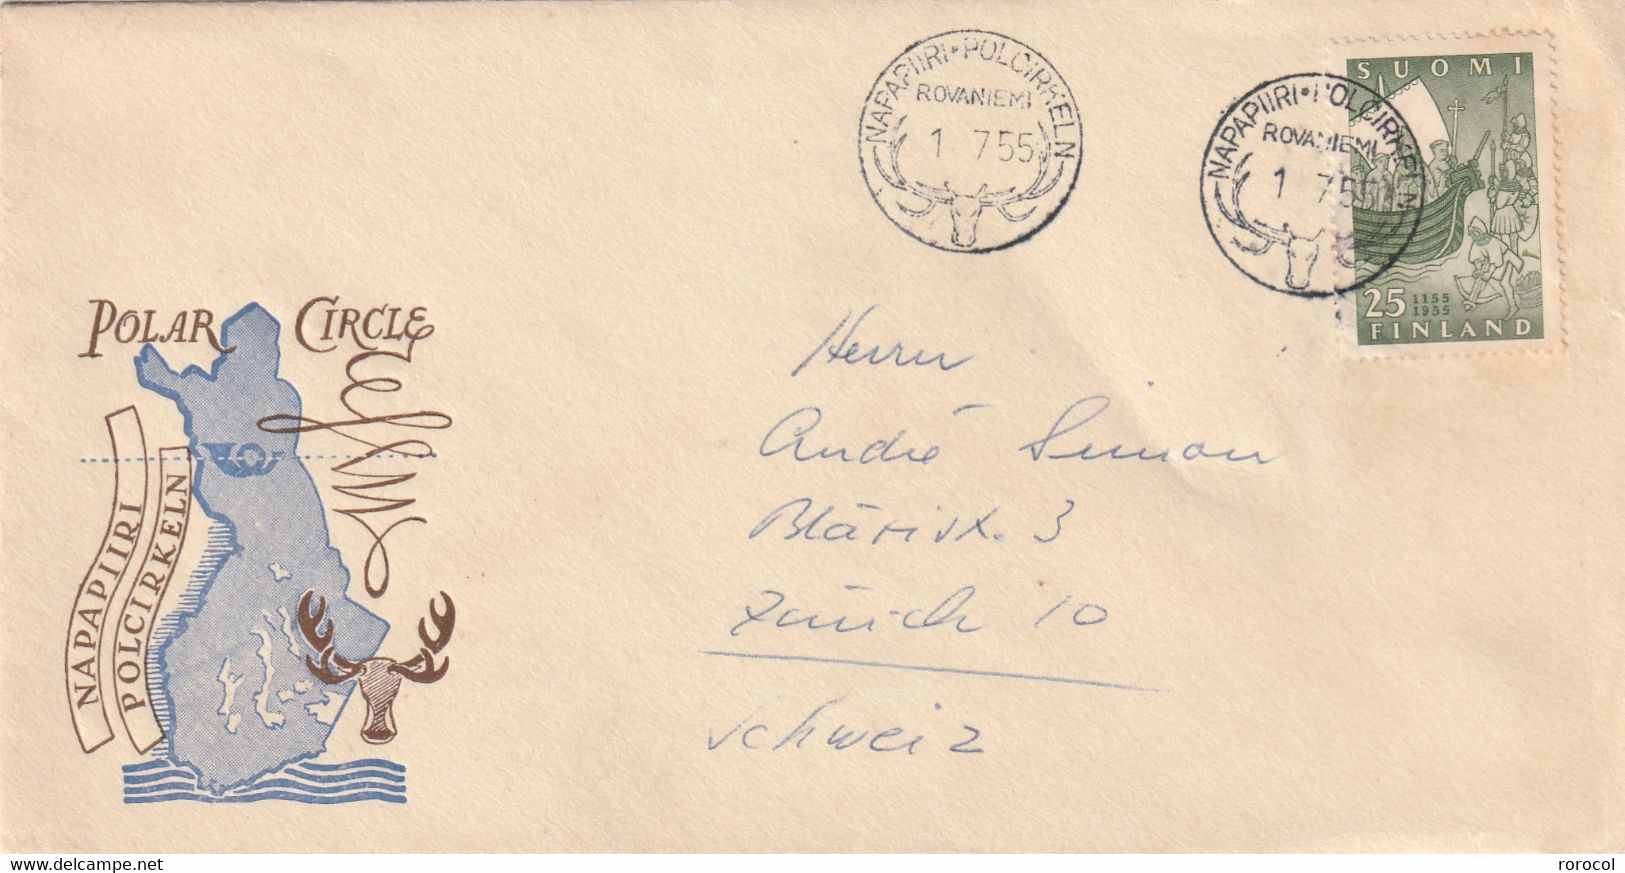 NAPAPIIRI • POLCIRKELN
ROVANIEMI
1 7 55
NAPAPIIRI • POLCIRKELN
ROVANIEMI
1 7 55
SUOMI
25 1155
1955
FINLAND
POLAR CIRCLE
NAPAPIIRI
POLCIRKELN
Herrn
André Simon
Zürich 10
Schweiz
www.delcampe.net
rorocol